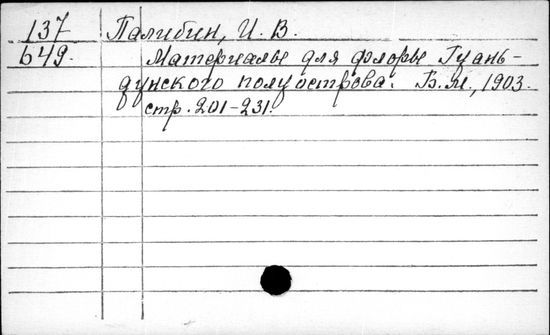 137 Палибин, И. В.
649. Материалы для флоры Гуань-
дунского полуострова. Б.м., 1903.
стр. 201-231.